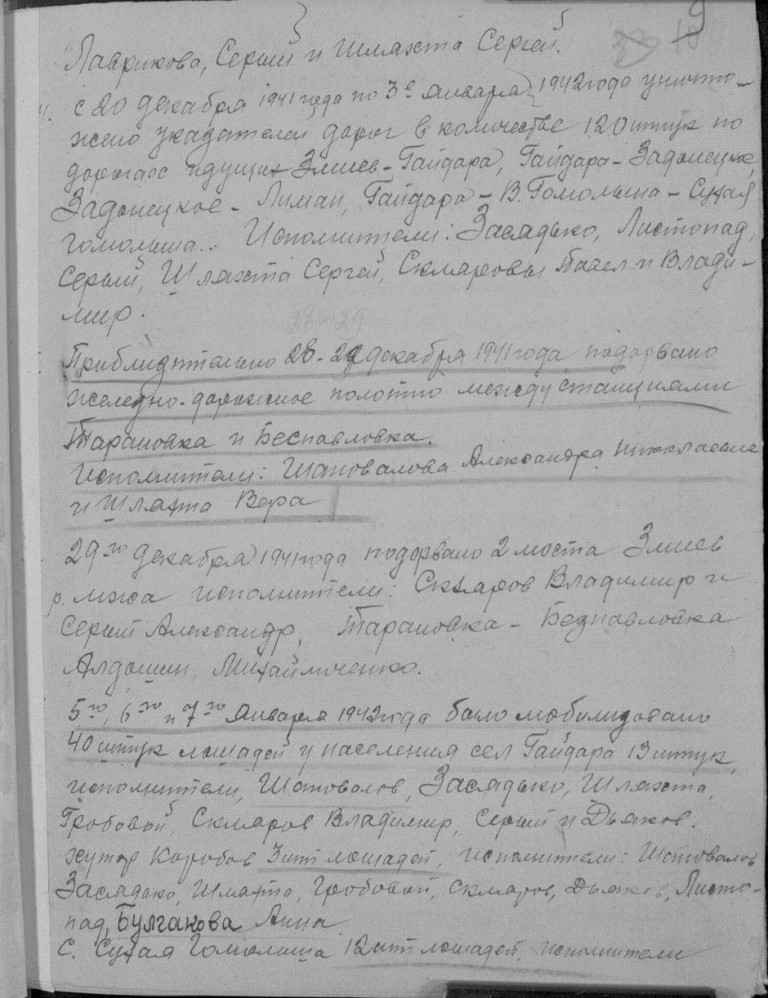 9
Лаврикова, Серый и Шляхта Сергей.
с 20 декабря 1941 года по 3е января 1942 года уничто-
жено указателей дорог в количестве 120 штук по
дорогах идущих Змиев-Гайдара, Гайдара-Задонецкое,
Задонецкое - Лиман, Гайдара - В. Гомольша - Сухая
Гомольша.. Исполнители: Засядько, Листопад,
Серый, Шляхта Сергей, Скляровы Павел и Влади-
мир.
28-29
Приблизительно 28-29 декабря 1941 года подорвано
железно-дорожное полотно между станциями
Тарановка и Беспавловка.
Исполнители: Шаповалова Александра Николаевна
и Шляхта Вера
29го декабря 1941 года подорвано 2 моста Змиев
р. мжа исполнители: Скляров Владимир и
Серый Александр, Тарановка - Безпавловка
Алдошин, Михайличенко.
5го, 6го и 7го января 1942 года было мобилизовано
40 штук лошадей у населения сел Гайдара 13 штук,
исполнители, Шаповалов, Засядько, Шляхта,
Гробовой, Скляров Владимир, Серый и Дьяков.
хутор Коробов 3 шт лошадей, исполнители: Шаповалов
Засядько, Шляхта, Гробовой, Скляров, Дьяков, Листо-
пад, Булгакова Анна.
С. Сухая Гомольша 12 шт лошадей, исполнители